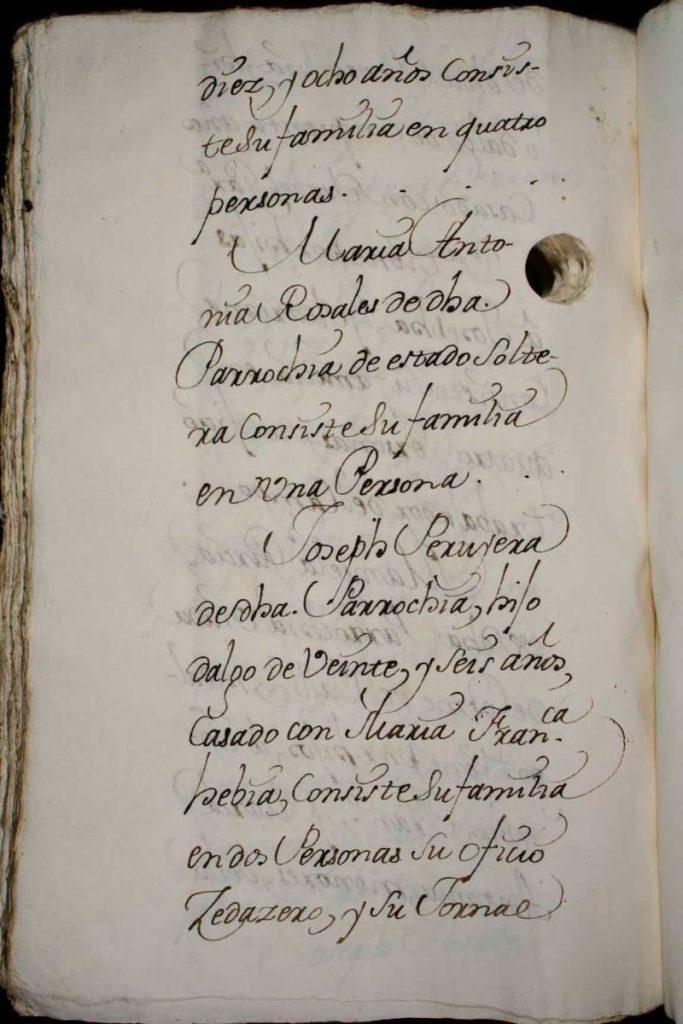 diez, y ocho años Consis-
te Su familia en quatro
personas.
Maria Anto-
nia Rosales de dha.
Parrochia de estado Solte-
ra Consiste Su familia
en Vna Persona.
Joseph Peruyera
de dha. Parrochia, hijo
dalgo de Veinte, y seis años,
Casado con Maria Fran.ca
hebia, Consiste Su familia
en dos Personas su oficio
Zedazero, y su Jornal